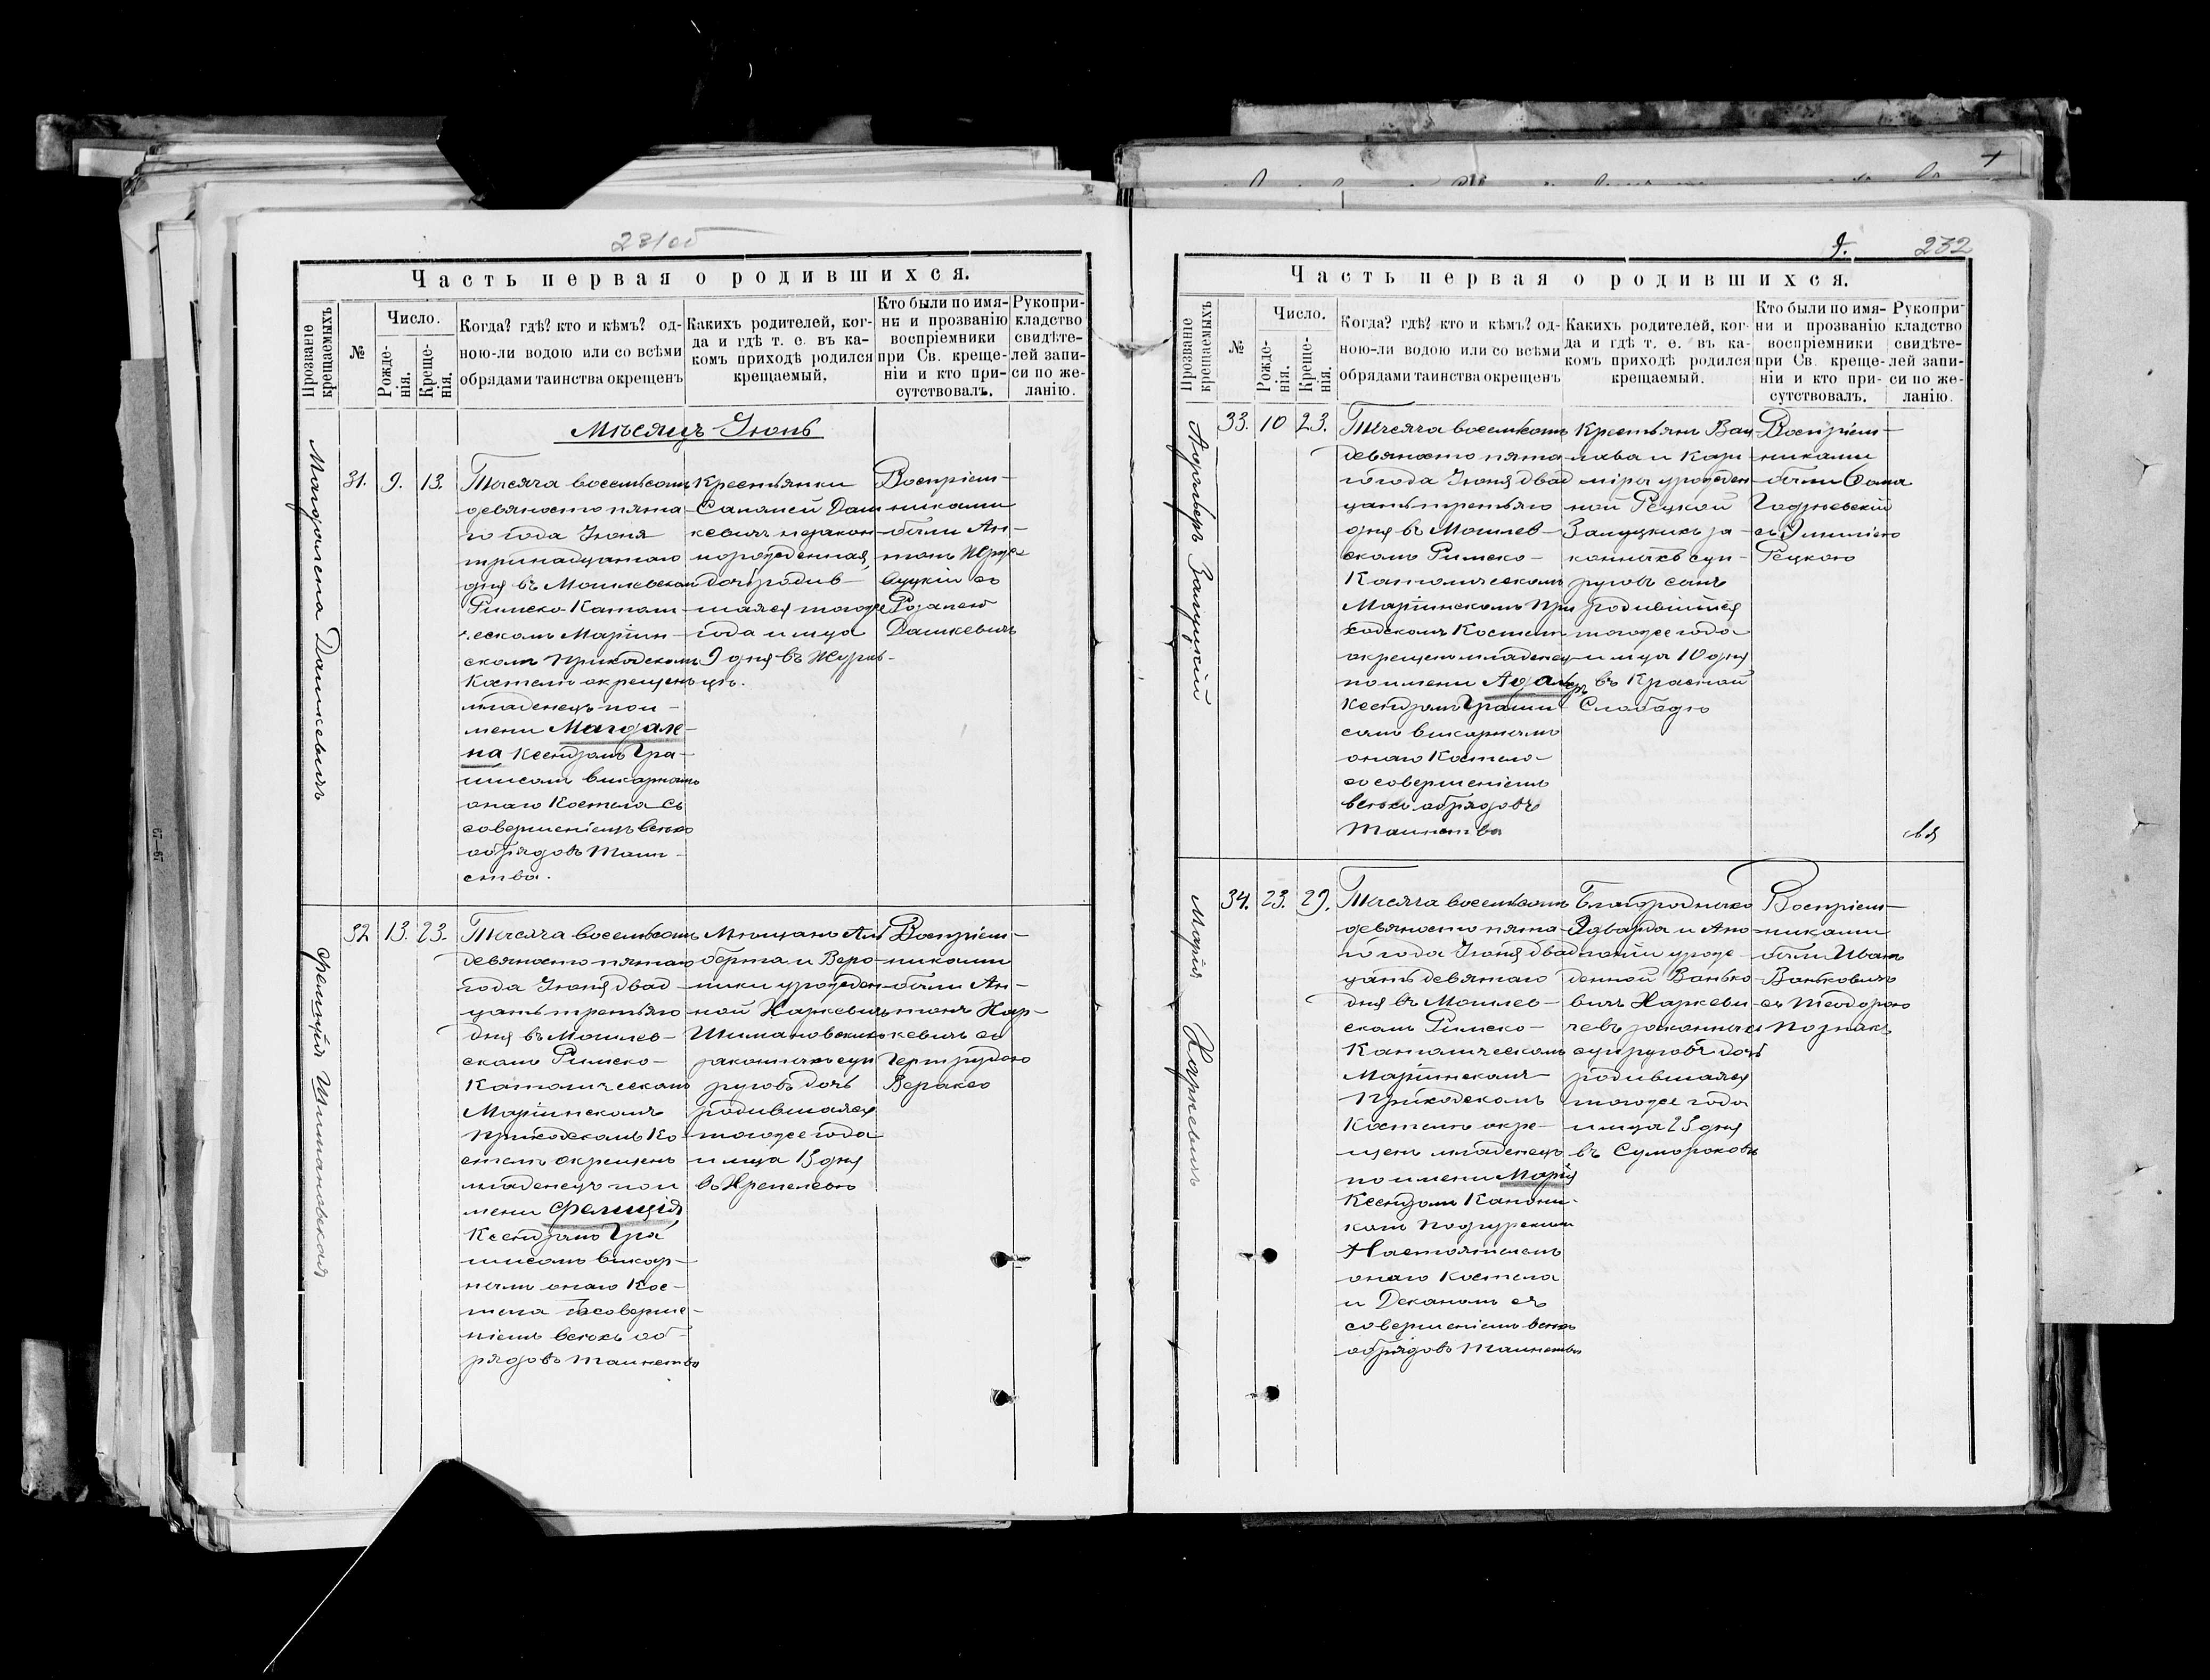 231об
Часть первая о родившихся.
Прозваніе крещаемыхъ
№
Число.
Рожде-
нія.
Креще-
нія.
Когда? гдѣ? кто и кѣмъ? од-
ною-ли водою или со всѣми
обрядами таинства окрещенъ
Какихъ родителей, ког-
да и гдѣ т. е. въ ка-
комъ приходѣ родился
крещаемый.
Кто были по имя-
ни и прозванію
воспріемники
при Св. креще-
ніи и кто при-
сутствовалъ.
Рукопри-
кладство
свидѣте-
лей запи-
си по же-
ланію.
Мѣсяцъ Іюнь
Магдалена Дашкевичъ
31. 9. 13.
Тысяча восемьсотъ
девяносто пята-
го года Іюня
тринадцатаго
дня въ Могилевском
Римско-Катали-
ческомъ Маріин-
скомъ приходском
Костелѣ окрещенъ
младенецъ по и-
мени Магдале-
на Ксендзомъ Гра-
шисом викарнымъ
онаго Костела съ
совершеніемъ всѣхъ
обрядовъ Таин-
ства.
Крестьянки
Саломеи Даш
кевичъ незакон-
норожденная,
дочь родив-
шаяся тогоже
года и мца
9 дня въ Журав-
цѣ.
Воспріем-
никами
были Ан-
тонъ
съ
Розалею
Дашкевичъ
Фелиція Шимановская
32 13. 23.
Тысяча восемьсотъ
девяносто пятаго
года Іюня двад-
цать третьяго
дня въ Могилев-
скомъ Римско-
Католическомъ
Маріинскомъ
приходскомъ Ко-
стелѣ окрещенъ
младенецъ по и
мени Фелиція
Ксендзомъ Гра
шисомъ викар-
нымъ онаго Кос-
тела съ соверше-
ніемъ всѣхъ об-
рядовъ таинства
Мѣщанъ Аль
берта и Веро-
ники урожден-
ной Наркевичъ
Шимановскихъ
законныхъ суп
руговъ дочь
родившаяся
тогоже года
и мца 13 дня
въ
Воспріем-
никами
были Ан-
тонъ Нар-
кевичъ съ
Гертрудою
Вераксо
9.
232
Часть первая о родившихся.
Прозваніе крещаемыхъ
№
Число.
Рожде-
нія.
Креще-
нія.
Когда? гдѣ? кто и кѣмъ? од-
ною-ли водою или со всѣми
обрядами таинства окрещенъ
Какихъ родителей, ког-
да и гдѣ т. е. въ ка-
комъ приходѣ родился
крещаемый.
Кто были по имя-
ни и прозванію
воспріемники
при Св. креще-
ніи и кто при-
сутствовалъ.
Рукопри-
кладство
свидѣте-
лей запи-
си по же-
ланію.
Адольфъ Залуцкій
33. 10 23.
Тысяча восемьсотъ
девяносто пята-
го года Іюня двад
цать третьяго
дня въ Могилев-
скомъ Римско-
Католическомъ
Маріинскомъ При
ходскомъ Костелѣ
окрещенъ младенец
по имени Адольфъ
Ксендзомъ Граши-
сомъ викарнымъ
онаго Костела
со совершеніемъ
всѣхъ обрядовъ
Таинства
Крестьянъ Вац
лава и Кази
міры урожден-
ной Рецкой
Залуцкихъ за-
конныхъ суп-
руговъ сынъ
родившійся
тогоже года
и мца 10 дня
въ Красной
Слободѣ
Воспріем-
никами
были Фома
Гаджевскій
съ Эмиліею
Рецкою
Марія Наркевичъ
34. 23. 29.
Тысяча восемьсотъ
девяносто пята-
го года Іюня двад
цать девятаго
дня въ Могилев-
скомъ Римско-
Католическомъ
Маріинскомъ
Приходскомъ
Костелѣ окре-
щенъ младенецъ
по имени Марія
Ксендзомъ Канони-
комъ Подгурскимъ
Настоятелемъ
онаго Костела
и Деканомъ съ
совершеніемъ всѣхъ
обрядовъ Таинства
Благородныхъ
Эдварда и Апо-
лоніи урож-
денной Ванько-
вичъ Наркеви-
чевъ законныхъ
супруговъ дочь
родившаяся
тогоже года
и мца 23 дня
въ Сумороковѣ
Воспріем-
никами
были Иванъ
Ваньковичъ
съ Теодорою
Познякъ